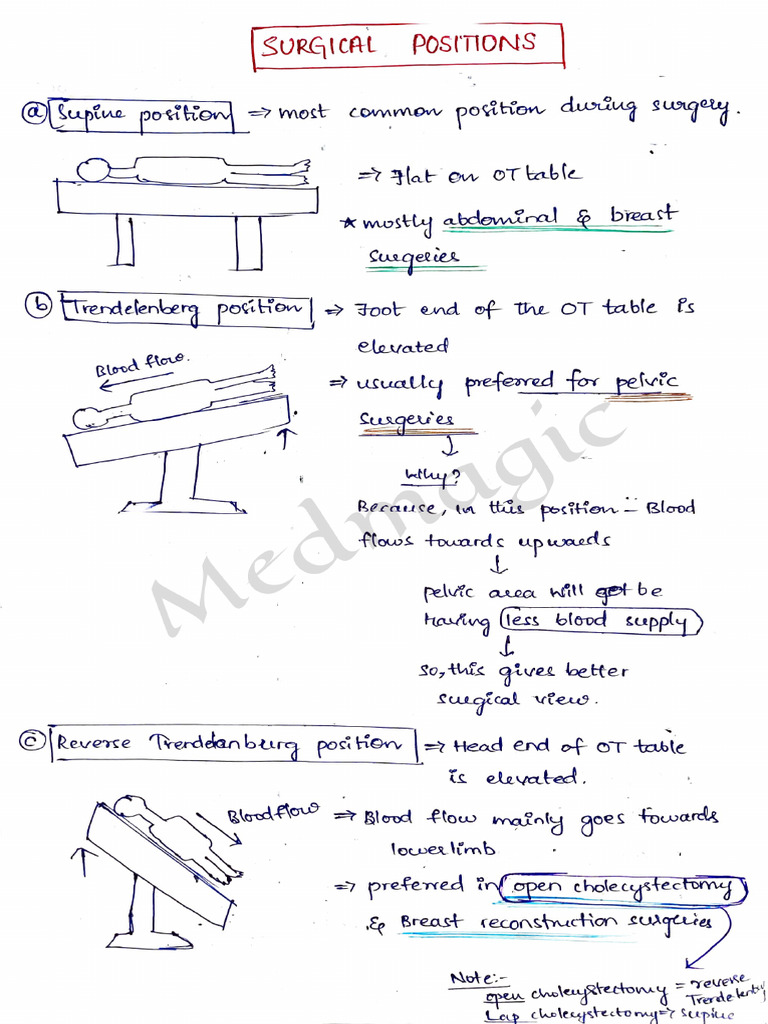 SURGICAL POSITIONS
ⓐ Supine position ⇒ most common position during surgery.
⇒ Flat on OT table
* mostly abdominal & breast
surgeries
ⓑ Trendelenberg position ⇒ Foot end of the OT table is
elevated
Blood flow.
⇒ usually preferred for pelvic
surgeries
↓
Why?
Because, in this position :- Blood
flows towards upwards
↓
pelvic area will be
having less blood supply
↓
so, this gives better
surgical view.
ⓒ Reverse Trendelenburg position ⇒ Head end of OT table
is elevated.
Blood flow
⇒ Blood flow mainly goes towards
lower limb
⇒ preferred in open cholecystectomy
& Breast reconstruction surgeries
Note:-
open cholecystectomy = reverse
Trendelenberg
Lap cholecystectomy ⇒ supine
Medmagic